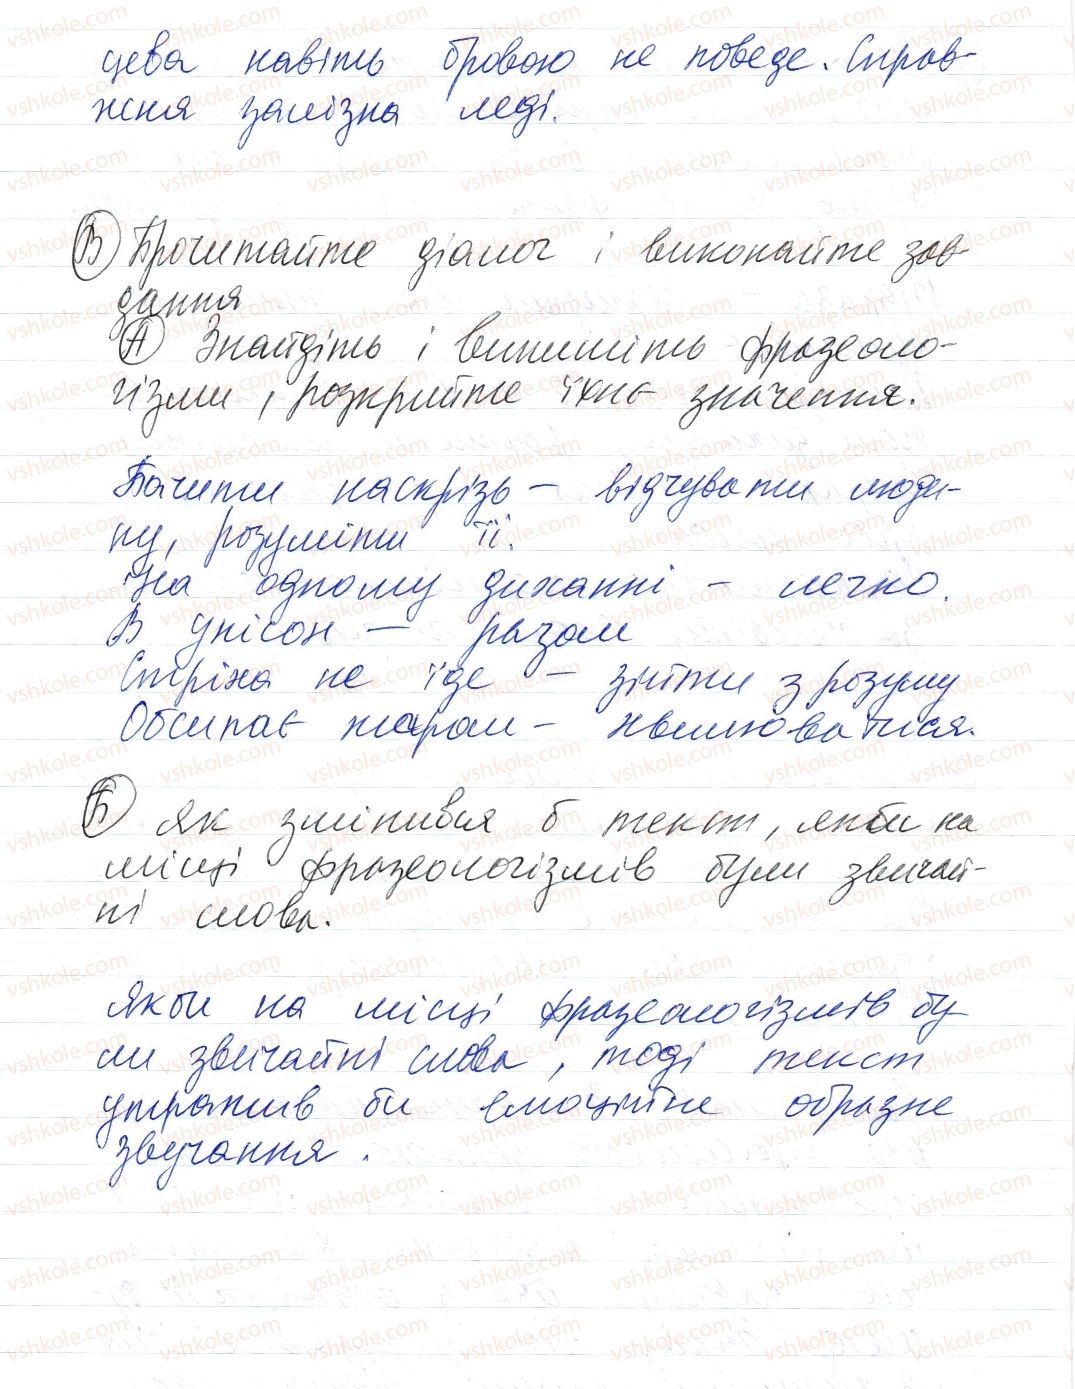 цева навіть бровою не поведе. Справ-
жня залізна леді.
В Прочитайте діалог і виконайте зав
дання
А Знайдіть і випишіть фразеоло-
гізми, розкрийте їхнє значення.
Бачити наскрізь – відчувати люди-
ну, розуміти її.
На одному диханні – легко.
В унісон – разом
Стріха не їде – зійти з розуму
Обсипає жаром – хвилюватися.
Б Як змінився б текст, якби на
місці фразеологізмів були звичай-
ні слова.
Якби на місці фразеологізмів бу
ли звичайні слова, тоді текст
утратив би емоційне образне
звучання.